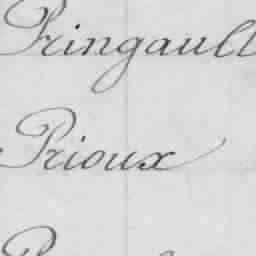 Pringault
Prioux